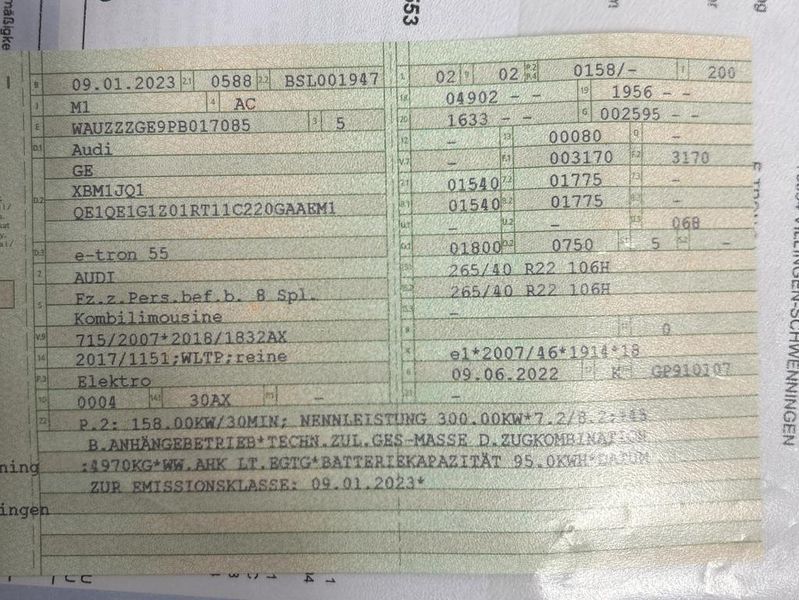 553
mäßigke
B 09.01.2023 2.1 0588 2.2 BSL001947
J M1 4 AC
E WAUZZZGE9PB017085 3 5
D.1 Audi
GE
XBM1JQ1
D.2 QE1QE1G1Z01RT11C220GAAEM1
D.3 e-tron 55
2 AUDI
5 Fz.z.Pers.bef.b. 8 Spl.
Kombilimousine
V.9 715/2007*2018/1832AX
14 2017/1151;WLTP;reine
P.3 Elektro
10 0004 14.1 30AX P.1 -
L 02 9 02 P.2 P.4 0158/- T 200
18 04902 - - 19 1956 - -
20 1633 - - G 002595 - -
12 - 13 00080 Q -
V.7 - F.1 003170 F.2 3170
7.1 01540 7.2 01775 7.3 -
8.1 01540 8.2 01775 8.3 -
U.1 - U.2 - U.3 068
O.1 01800 O.2 0750 S.1 5 S.2 -
15.1 265/40 R22 106H
15.2 265/40 R22 106H
15.3 -
R 11 0
K e1*2007/46*1914*18
6 09.06.2022 17 K 16 GP910107
21 -
22 P.2: 158.00KW/30MIN; NENNLEISTUNG 300.00KW*7.2/8.2:+45
B.ANHÄNGEBETRIEB*TECHN.ZUL.GES-MASSE D.ZUGKOMBINATION
:4970KG*WW.AHK LT.EGTG*BATTERIEKAPAZITÄT 95.0KWH*DATUM
ZUR EMISSIONSKLASSE: 09.01.2023*
ning
ingen
VILLINGEN-SCHWENNINGEN